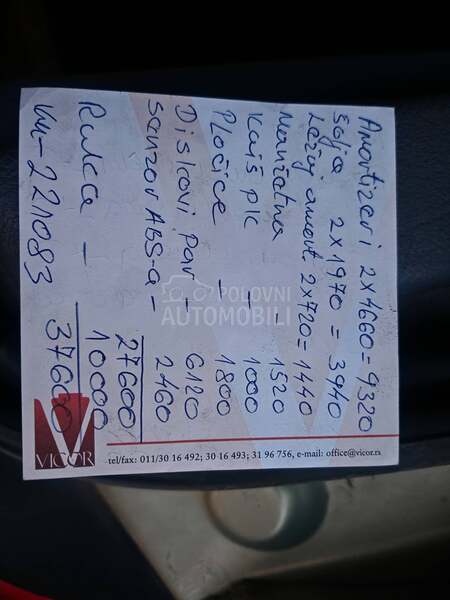 Amortizeri 2x4660 = 9320
Šolja 2x1970 = 3940
Ležaj amort. 2x720 = 1440
- 1520
Kaiš PK - 1000
Pločice - 1800
Diskovi par - 6120
senzor ABS-a - 2460
27600
Ruka - 10000
37600
km-221083
VICOR
tel/fax: 011/30 16 492; 30 16 493; 31 96 756, e-mail: office@vicor.rs
POLOVNI
AUTOMOBILI